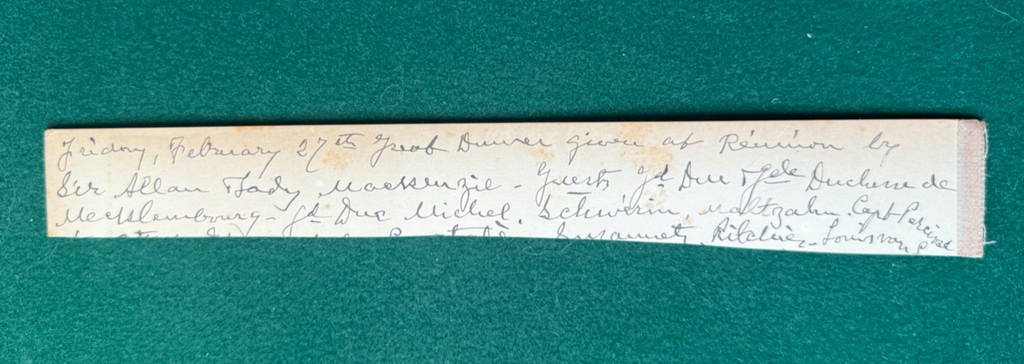 Friday, February 27th Great Dinner given at Réunion by
Sir Allan & Lady Mackenzie - Guests Gd Duc & Gde Duchesse de
Mecklembourg - Gd Duc Michel. Schwerin, Maltzahn. Capt Percival
Susannet, Ritchier - Louis van